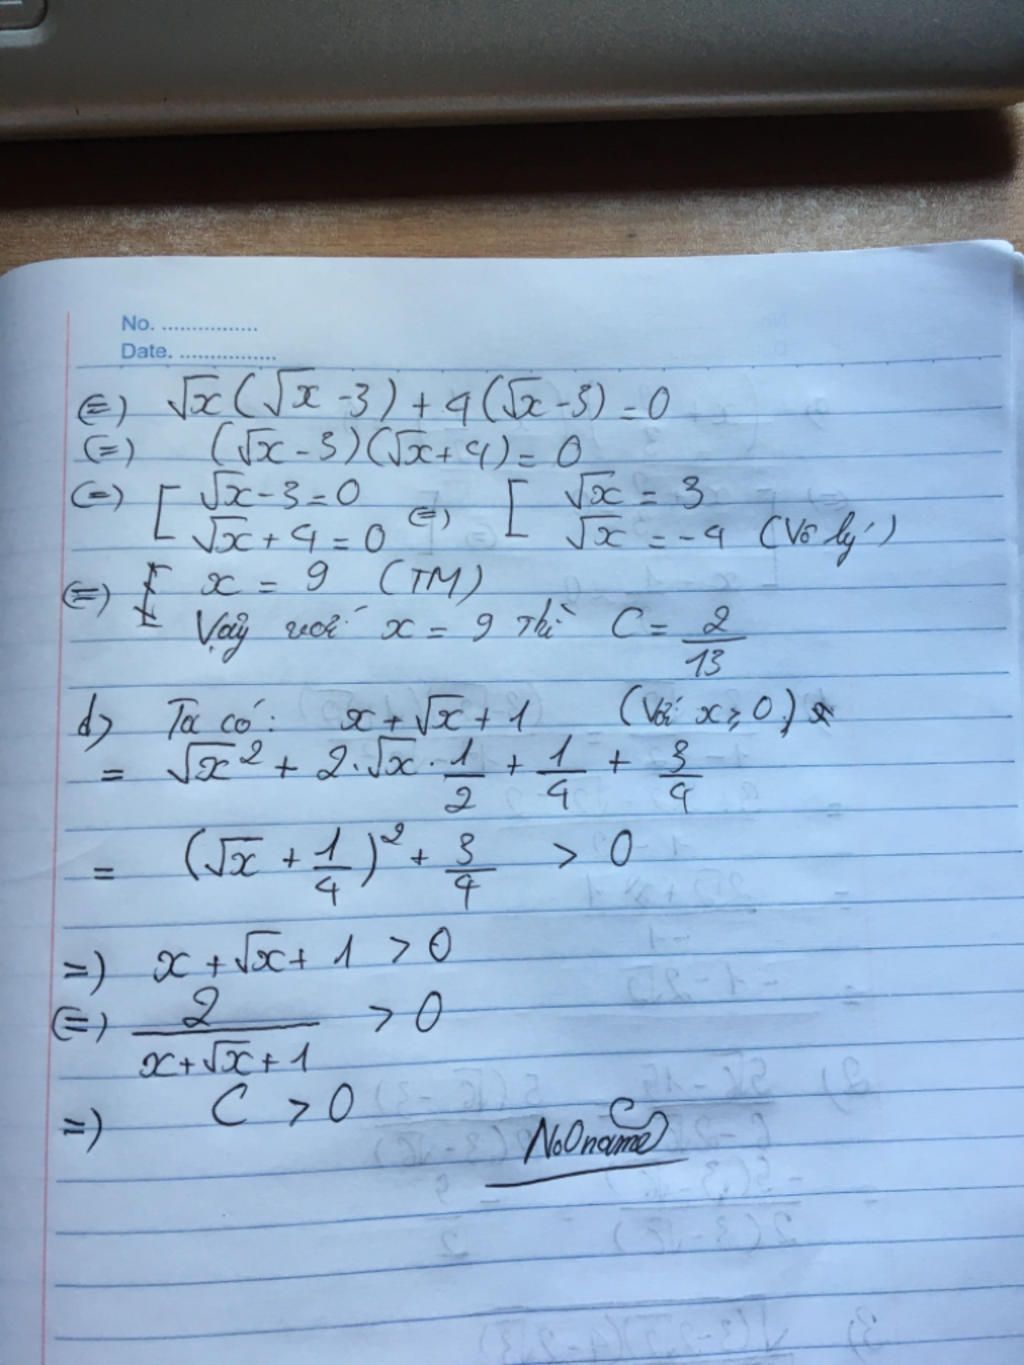 No. ................
Date. ................
(=) √x(√x - 3) + 4(√x - 3) = 0
(=) (√x - 3)(√x + 4) = 0
(=) [ √x - 3 = 0 (=) [ √x = 3
√x + 4 = 0 √x = -4 (Vô lý)
(=) x = 9 (TM)
Vậy với x = 9 thì C = 2/13
d) Ta có: x + √x + 1 (Với x ≥ 0)
= √x² + 2.√x.1/2 + 1/4 + 3/4
= (√x + 1/4)² + 3/4 > 0
=) x + √x + 1 > 0
(=) 2/(x + √x + 1) > 0
=) C > 0
No0name